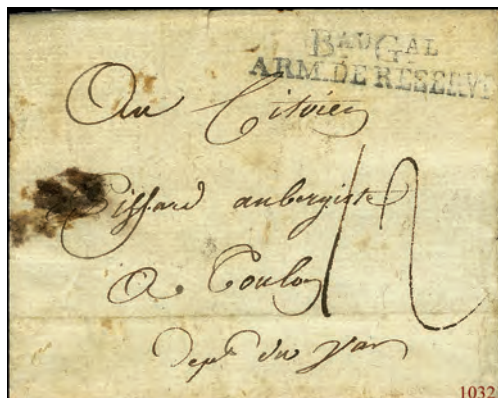 BAU GAL
ARM. DE RESERVE
Au Citoien
aubergiste
12
a Toulon
dept du var
1032